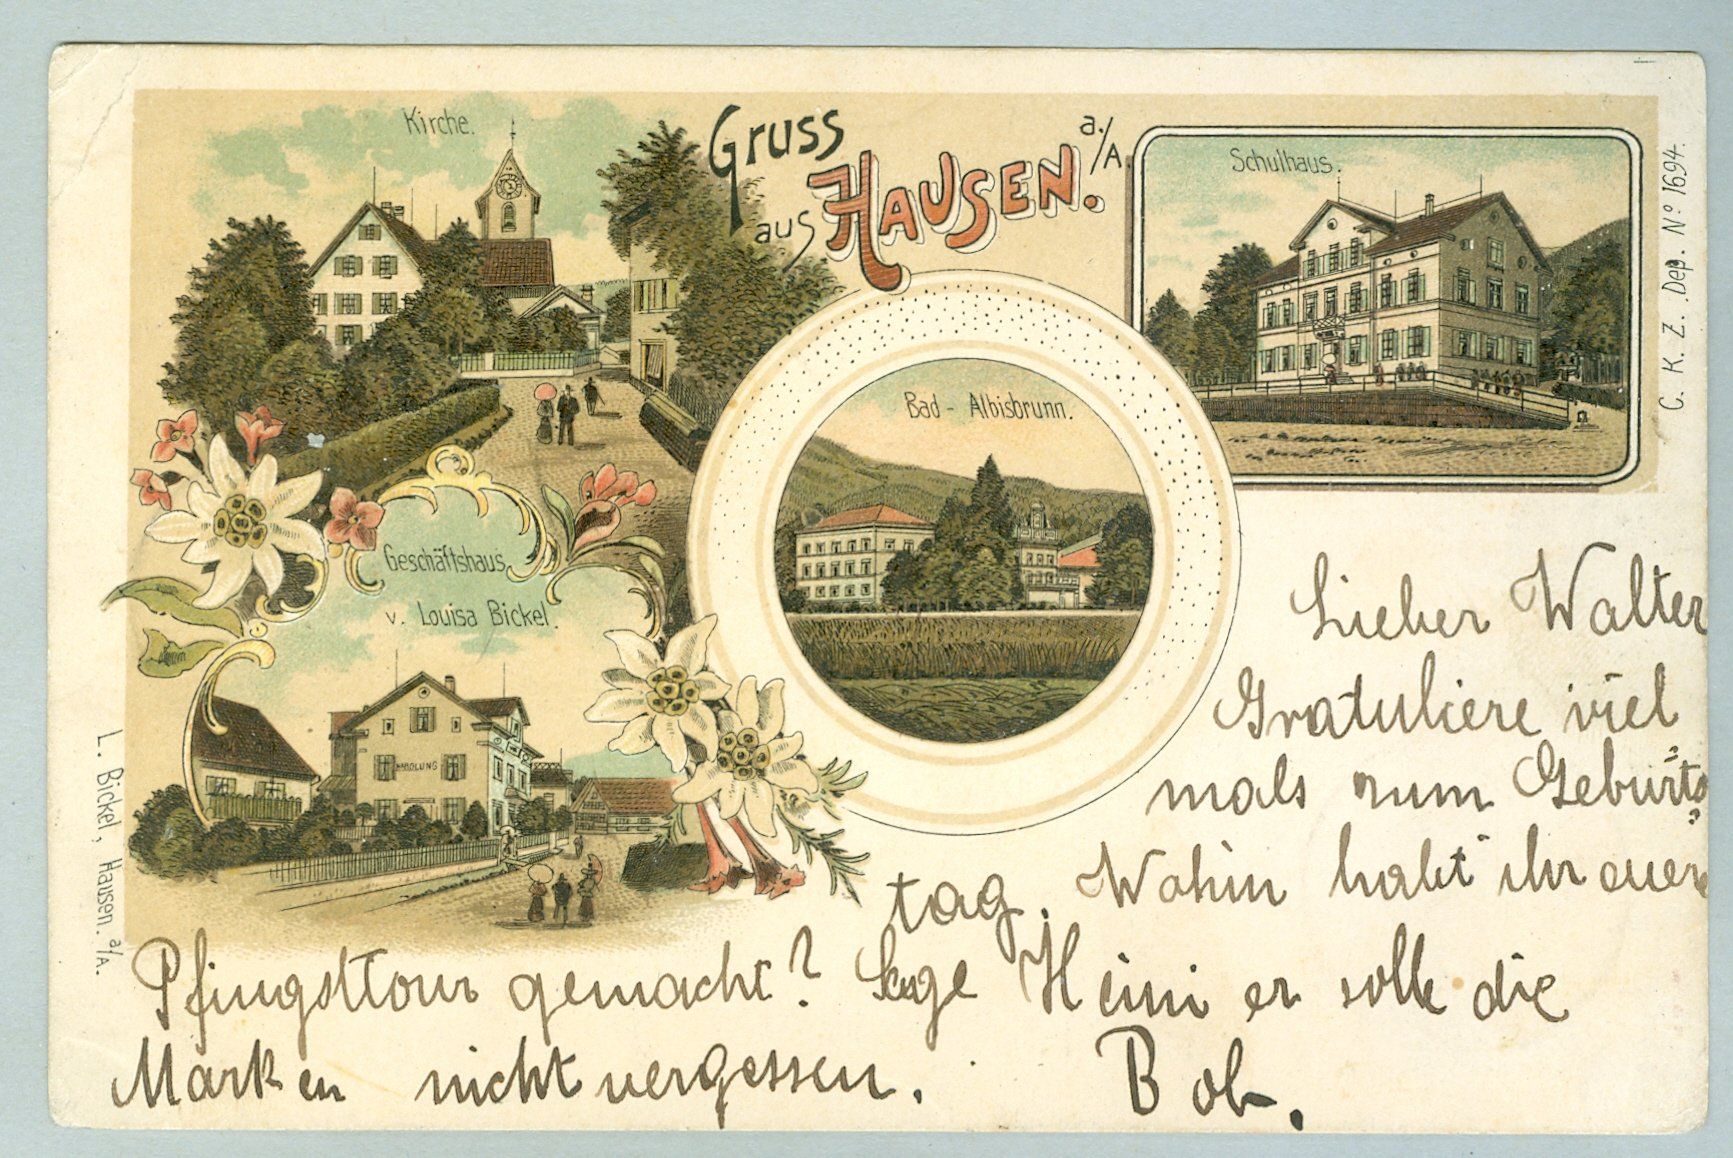 Kirche.
Gruss
aus HAUSEN. a./A.
Schulhaus.
C. K. Z. Dep. Nº 1694.
Bad - Albisbrunn.
Geschäftshaus
v. Louisa Bickel.
HANDLUNG
L. Bickel, Hausen. a/A.
Lieber Walter
Gratuliere viel
mals zum Geburts
tag. Wohin habt ihr euere
Pfingsttour gemacht? Sage Heini er solle die
Marken nicht vergessen. Bob.